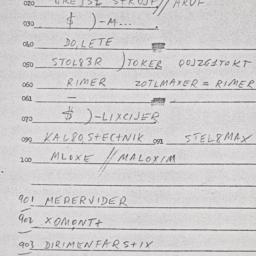 030 $ )-M...
040 DO,LETE
050 STOL83R )TOKER
060 RIMER ZOTLMAXER = RIMER
061 –
070 $ )-LIXCIJER
090 KAL80StECtNIK 091 STEL8MAX
100 MLOXE //MALOXIM
901 MEPERVIDER
902 XOMONtt
903 DIRIMENFARStIX